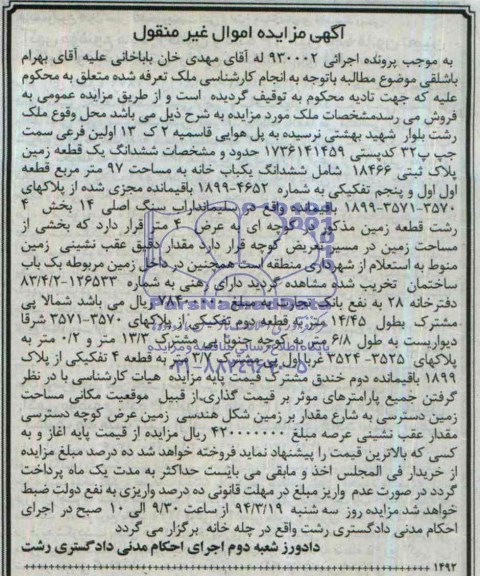 آگهی مزایده اموال غیر منقول
به موجب پرونده اجرائی ۹۳۰۰۰۲ له آقای مهدی خان باباخانی علیه آقای بهرام
باشلقی موضوع مطالبه باتوجه به انجام کارشناسی ملک تعرفه شده متعلق به محکوم
علیه که جهت تادیه محکوم به توقیف گردیده است و از طریق مزایده عمومی به
فروش می رسدمشخصات ملک مورد مزایده به شرح ذیل می باشد محل وقوع ملک
رشت بلوار شهید بهشتی نرسیده به پل هوایی قاسمیه ۲ ک ۱۳ اولین فرعی سمت
چپ پ۳۲ کدپستی ۱۷۳۶۱۴۱۴۵۹ حدود و مشخصات ششدانگ یک قطعه زمین
پلاک ثبتی ۱۸۴۶۶ شامل ششدانگ یکباب خانه به مساحت ۹۷ متر مربع قطعه
اول اول و پنجم تفکیکی به شماره ۴۶۵۲-۱۸۹۹ باقیمانده مجزی شده از پلاکهای
۳۵۷۰-۳۵۷۱-۱۸۹۹ باقیمانده واقع در سلیمانداراب سنگ اصلی ۱۴ بخش ۴
رشت قطعه زمین مذکور در کوچه ای به عرض ۴ متر قرار دارد که بخشی از
مساحت زمین در مسیر تعریض کوچه قرار دارد مقدار دقیق عقب نشینی زمین
منوط به استعلام از شهرداری منطقه است همچنین در داخل زمین مربوطه یک باب
ساختمان تخریب شده مشاهده گردید دارای رهنی به شماره ۱۲۶۵۳۳-۸۳/۴/۲
دفترخانه ۲۸ به نفع بانک تجارت به مبلغ ریال می باشد شمالا پی
مشترک بطول ۱۴/۴۵ متر به قطعه دوم تفکیکی از پلاکهای ۳۵۷۰-۳۵۷۱ شرقا
دیواریست به طول ۶/۸ متر به کوچه جنوبا پی مشترک ۱۳/۲ متر و ۰/۲ متر به
پلاکهای ۳۵۲۵-۳۵۲۴ غربا اول پی مشترک ۳/۷ متر به قطعه ۴ تفکیکی از پلاک
۱۸۹۹ باقیمانده دوم خندق مشترک قیمت پایه مزایده هیات کارشناسی با در نظر
گرفتن جمیع پارامترهای موثر بر قیمت گذاری،از قبیل موقعیت مکانی مساحت
زمین دسترسی به شارع مقدار بر زمین شکل هندسی زمین عرض کوچه دسترسی
مقدار عقب نشینی عرصه مبلغ ۴۲۰۰۰۰۰۰۰ ریال مزایده از قیمت پایه اغاز و به
کسی که بالاترین قیمت را پیشنهاد نماید فروخته خواهد شد ده درصد مبلغ مزایده
از خریدار فی المجلس اخذ و مابقی می بایست حداکثر به مدت یک ماه پرداخت
گردد در صورت عدم واریز مبلغ در مهلت قانونی ده درصد واریزی به نفع دولت ضبط
خواهد شد.مزایده روز سه شنبه ۹۴/۳/۱۹ از ساعت ۹/۳۰ الی ۱۰ صبح در اجرای
احکام مدنی دادگستری رشت واقع در چله خانه برگزار می گردد
دادورز شعبه دوم اجرای احکام مدنی دادگستری رشت
۱۴۹۲